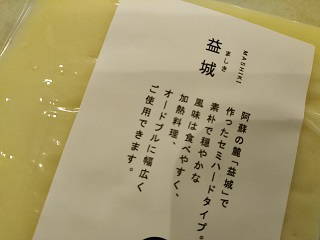 MASHIKI
ましき
益城
阿蘇の麓「益城」で
作ったセミハードタイプ。
素朴で穏やかな
風味は食べやすく、
加熱料理、
オードブルに幅広く
ご使用できます。